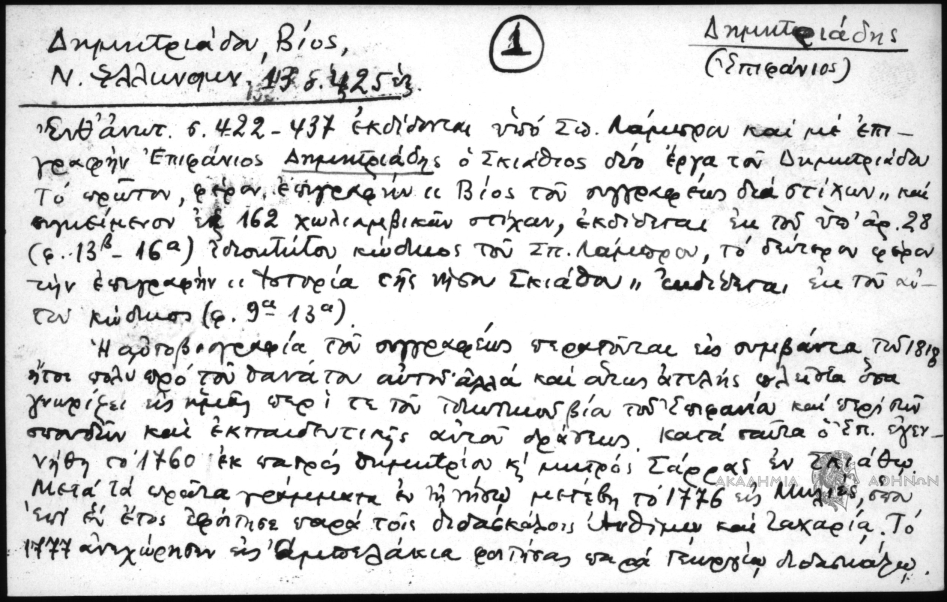 Δημητριάδου, Βίος,
Ν. Ἑλληνομν. 13 σ. 425 ἑξ.
1
Δημητριάδης
(Ἐπιφάνιος)
Ἐνθ' ἀνωτ. σ. 422-437 ἐκδίδονται ὑπό Σπ. Λάμπρου καί μέ ἐπι-
γραφήν Ἐπιφάνιος Δημητριάδης ὁ Σκιάθιος δύο ἔργα τοῦ Δημητριάδου
Τό πρῶτον, φέρον ἐπιγραφήν "Βίος τοῦ συγγραφέως διά στίχων" καί
συγκείμενον ἐκ 162 χωλιαμβικῶν στίχων, ἐκδίδεται ἐκ τοῦ ὑπ' ἀρ. 28
(φ. 13β - 16α) ἰδιοκτήτου κώδικος τοῦ Σπ. Λάμπρου, τό δεύτερον φέρον
τήν ἐπιγραφήν "Ἱστορία τῆς νήσου Σκιάθου" ἐκδίδεται ἐκ τοῦ αὐ-
τοῦ κώδικος (φ. 9α 13α).
Ἡ αὐτοβιογραφία τοῦ συγγραφέως περατοῦται εἰς συμβάντα τοῦ 1818
ἤτοι πολύ πρό τοῦ θανάτου αὐτοῦ ἀλλά καί οὕτως ἀτελής πλεῖστα ὅσα
γνωρίζει εἰς ἡμᾶς περί τε τοῦ ἰδιωτικοῦ βίου τοῦ Ἐπιφανίου καί περί τῶν
σπουδῶν καί ἐκπαιδευτικῆς αὐτοῦ δράσεως. Κατά ταῦτα ὁ Ἐπ. ἐγεν-
νήθη τό 1760 ἐκ πατρός Δημητρίου κ' μητρός Σάρρας ἐν Σκιάθῳ.
Μετά τά πρῶτα γράμματα ἐν τῇ νήσῳ μετέβη τό 1776 εἰς Μηλιές, ὅπου
ἐπί ἕν ἔτος ἐφοίτησε παρά τοῖς διδασκάλοις Ἀνθίμῳ καί Ζαχαρίᾳ. Τό
1777 ἀνεχώρησεν εἰς Ἀμπελάκια φοιτήσας παρά Γεωργίῳ διδασκάλῳ.
ΑΚΑΔΗΜΙΑ ΑΘΗΝΩΝ